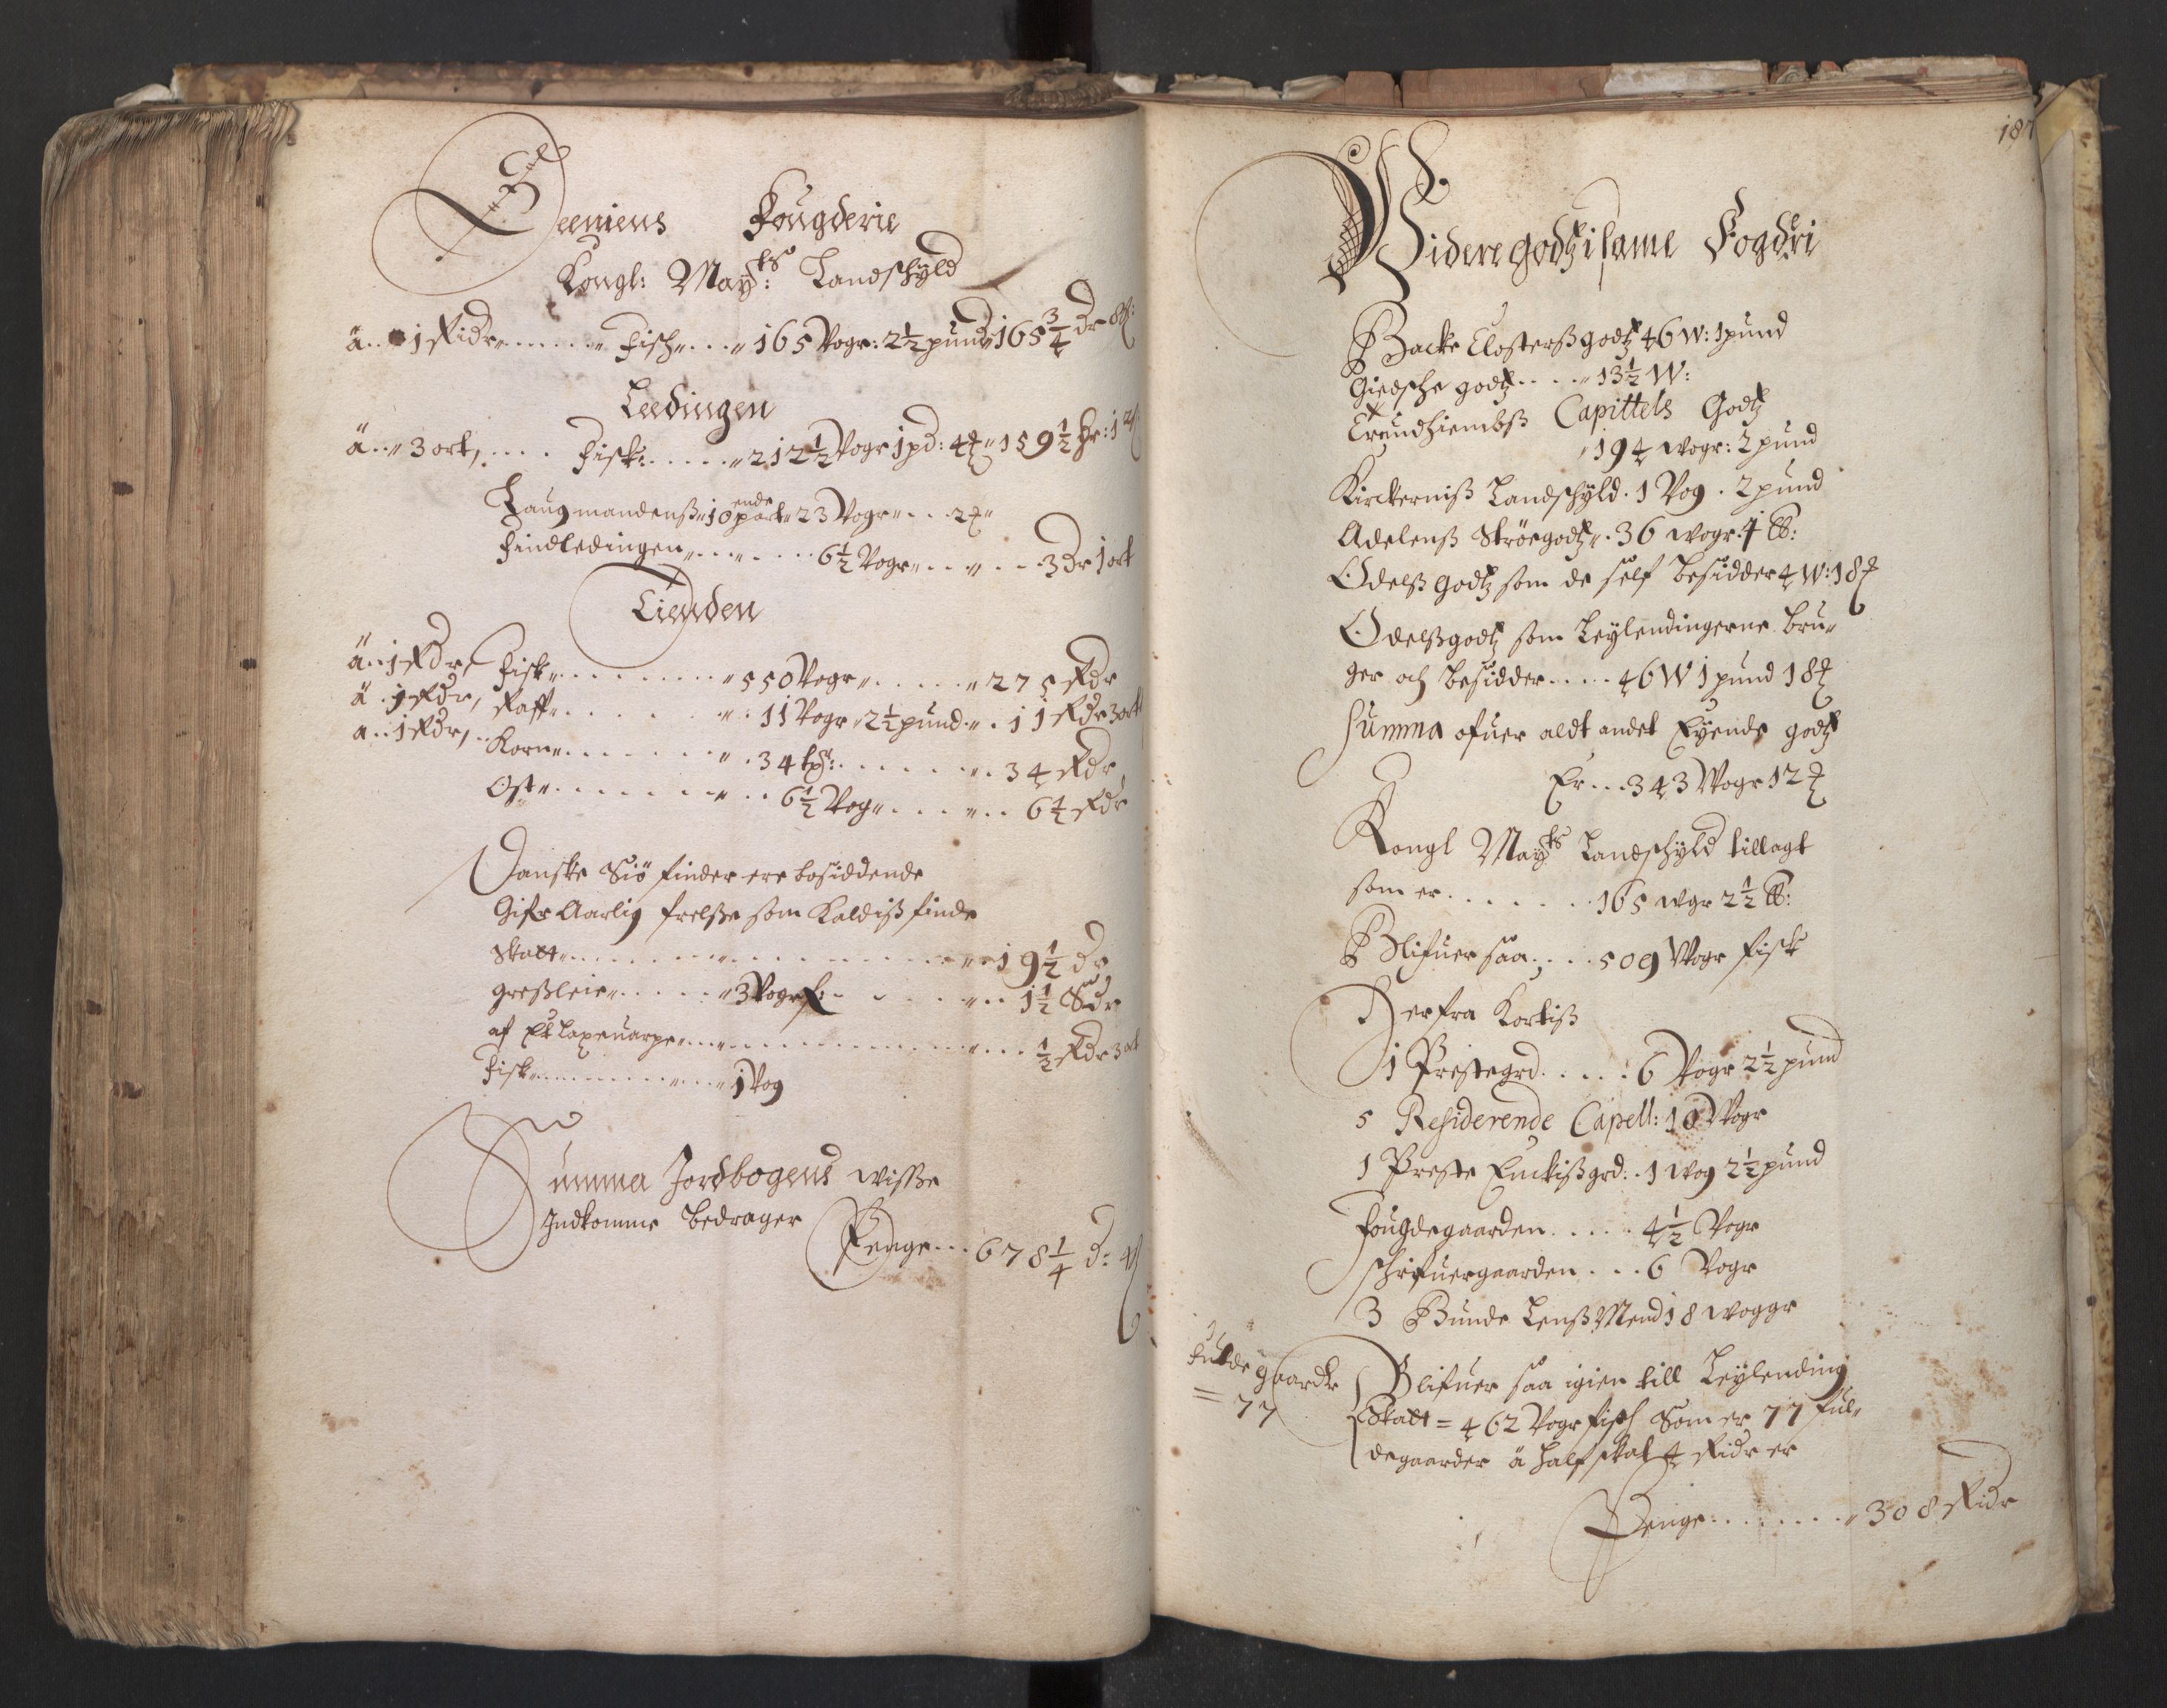 Seeniens Fougderie
Kongl: May:ts Landschyld
ä.. 1 Ridr ...... Fisch ... 165 Vogr: 2½ pund 165¾ dr 8 s:
Leedingen
ä.. 3 ort, .... Fisk: ..... 212½ Vogr 1 pd: 4 159½ Dr: 12 s
Laugmandenss 10ende part 23 Vogr ... 2
Findledingen ...... 6½ Vogr ..... 3 Dr 1 ort
Tienden
ä.. 1 Rdr, Fisk ......... 550 Vogr ..... 275 Rdr
ä . 1 Rdr, Raff ....... 11 Vogr 2½ pund .. 11 Rdr 3 ort
a.. 1 Rdr, Korn ....... 34 ........ 34 Rdr
Ost ......... 6½ Vog ..... 6½ Rdr
Danske Siö finder ere bosiddende
Gifr Aarlig frelsse som Kaldiss finde
skatt ................ 19½ dr
Gressleie ...... 3 Vogr f: ....... 1½ Rdr
af Et laxeuarpe ............... ½ Rdr 3 ort
Fisk ............ 1 Vog
Summa Jordbogens wisse
Indkomme bedrager
Penge ... 678¼ d: 4 s
187
Videre godtz i same Fogdri
Backe Closterss godtz 46 W: 1 pund
Giedsche godtz .... 13½ W:
Trundhiembss Capittels Godtz
194 wogr: 2 pund
Kirckerniss Landschyld . 1 Vog . 2 pund
Adelenss Ströegodtz . 36 wogr. 4 lb:
Odelss godtz som de self besidder 4 W: 18
Odelssgodtz som Leylendingerne bru-
ger och besidder ..... 46 W 1 pund 18
Summa ofuer aldt andet Eyende godtz
Er ... 343 Wogr 12
Kongl Mayts Landschyld tillagt
som er ....... 165 wgr 2½ lb:
Blifuer saa .... 509 Wogr fisk
Derfra Kortiss
1 Prestegrd ..... 6 Vogr 2½ pund
5 Residerende Capell: 10 Vogr
1 Preste Enckissgrd: . 1 wog 2½ pund
Fougdegaarden ..... 4½ Vogr
Schrifuergaarden ... 6 Vogr
3 Bunde Lenssmend 18 woggr
Fulde gaarde
= 77
Blifuer saa igien till Leylending
Skatt = 462 Vogr fisch Som er 77 ful-
degaarder ä half skat 4 Ridr er
Penge ........ 308 Ridr